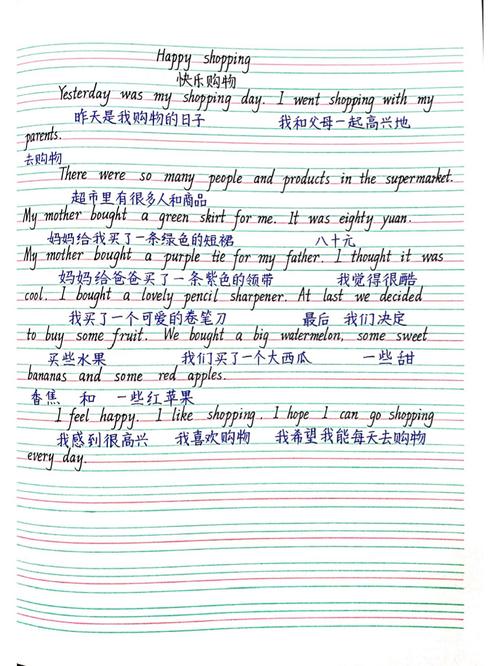 Happy shopping
快乐购物
Yesterday was my shopping day. I went shopping with my
昨天是我购物的日子 我和父母一起高兴地
parents.
去购物
There were so many people and products in the supermarket.
超市里有很多人和商品
My mother bought a green skirt for me. It was eighty yuan.
妈妈给我买了一条绿色的短裙 八十元
My mother bought a purple tie for my father. I thought it was
妈妈给爸爸买了一条紫色的领带 我觉得很酷
cool. I bought a lovely pencil sharpener. At last we decided
我买了一个可爱的卷笔刀 最后 我们决定
to buy some fruit. We bought a big watermelon, some sweet
买些水果 我们买了一个大西瓜 一些甜
bananas and some red apples.
香焦 和 一些红苹果
I feel happy. I like shopping. I hope I can go shopping
我感到很高兴 我喜欢购物 我希望我能每天去购物
every day.